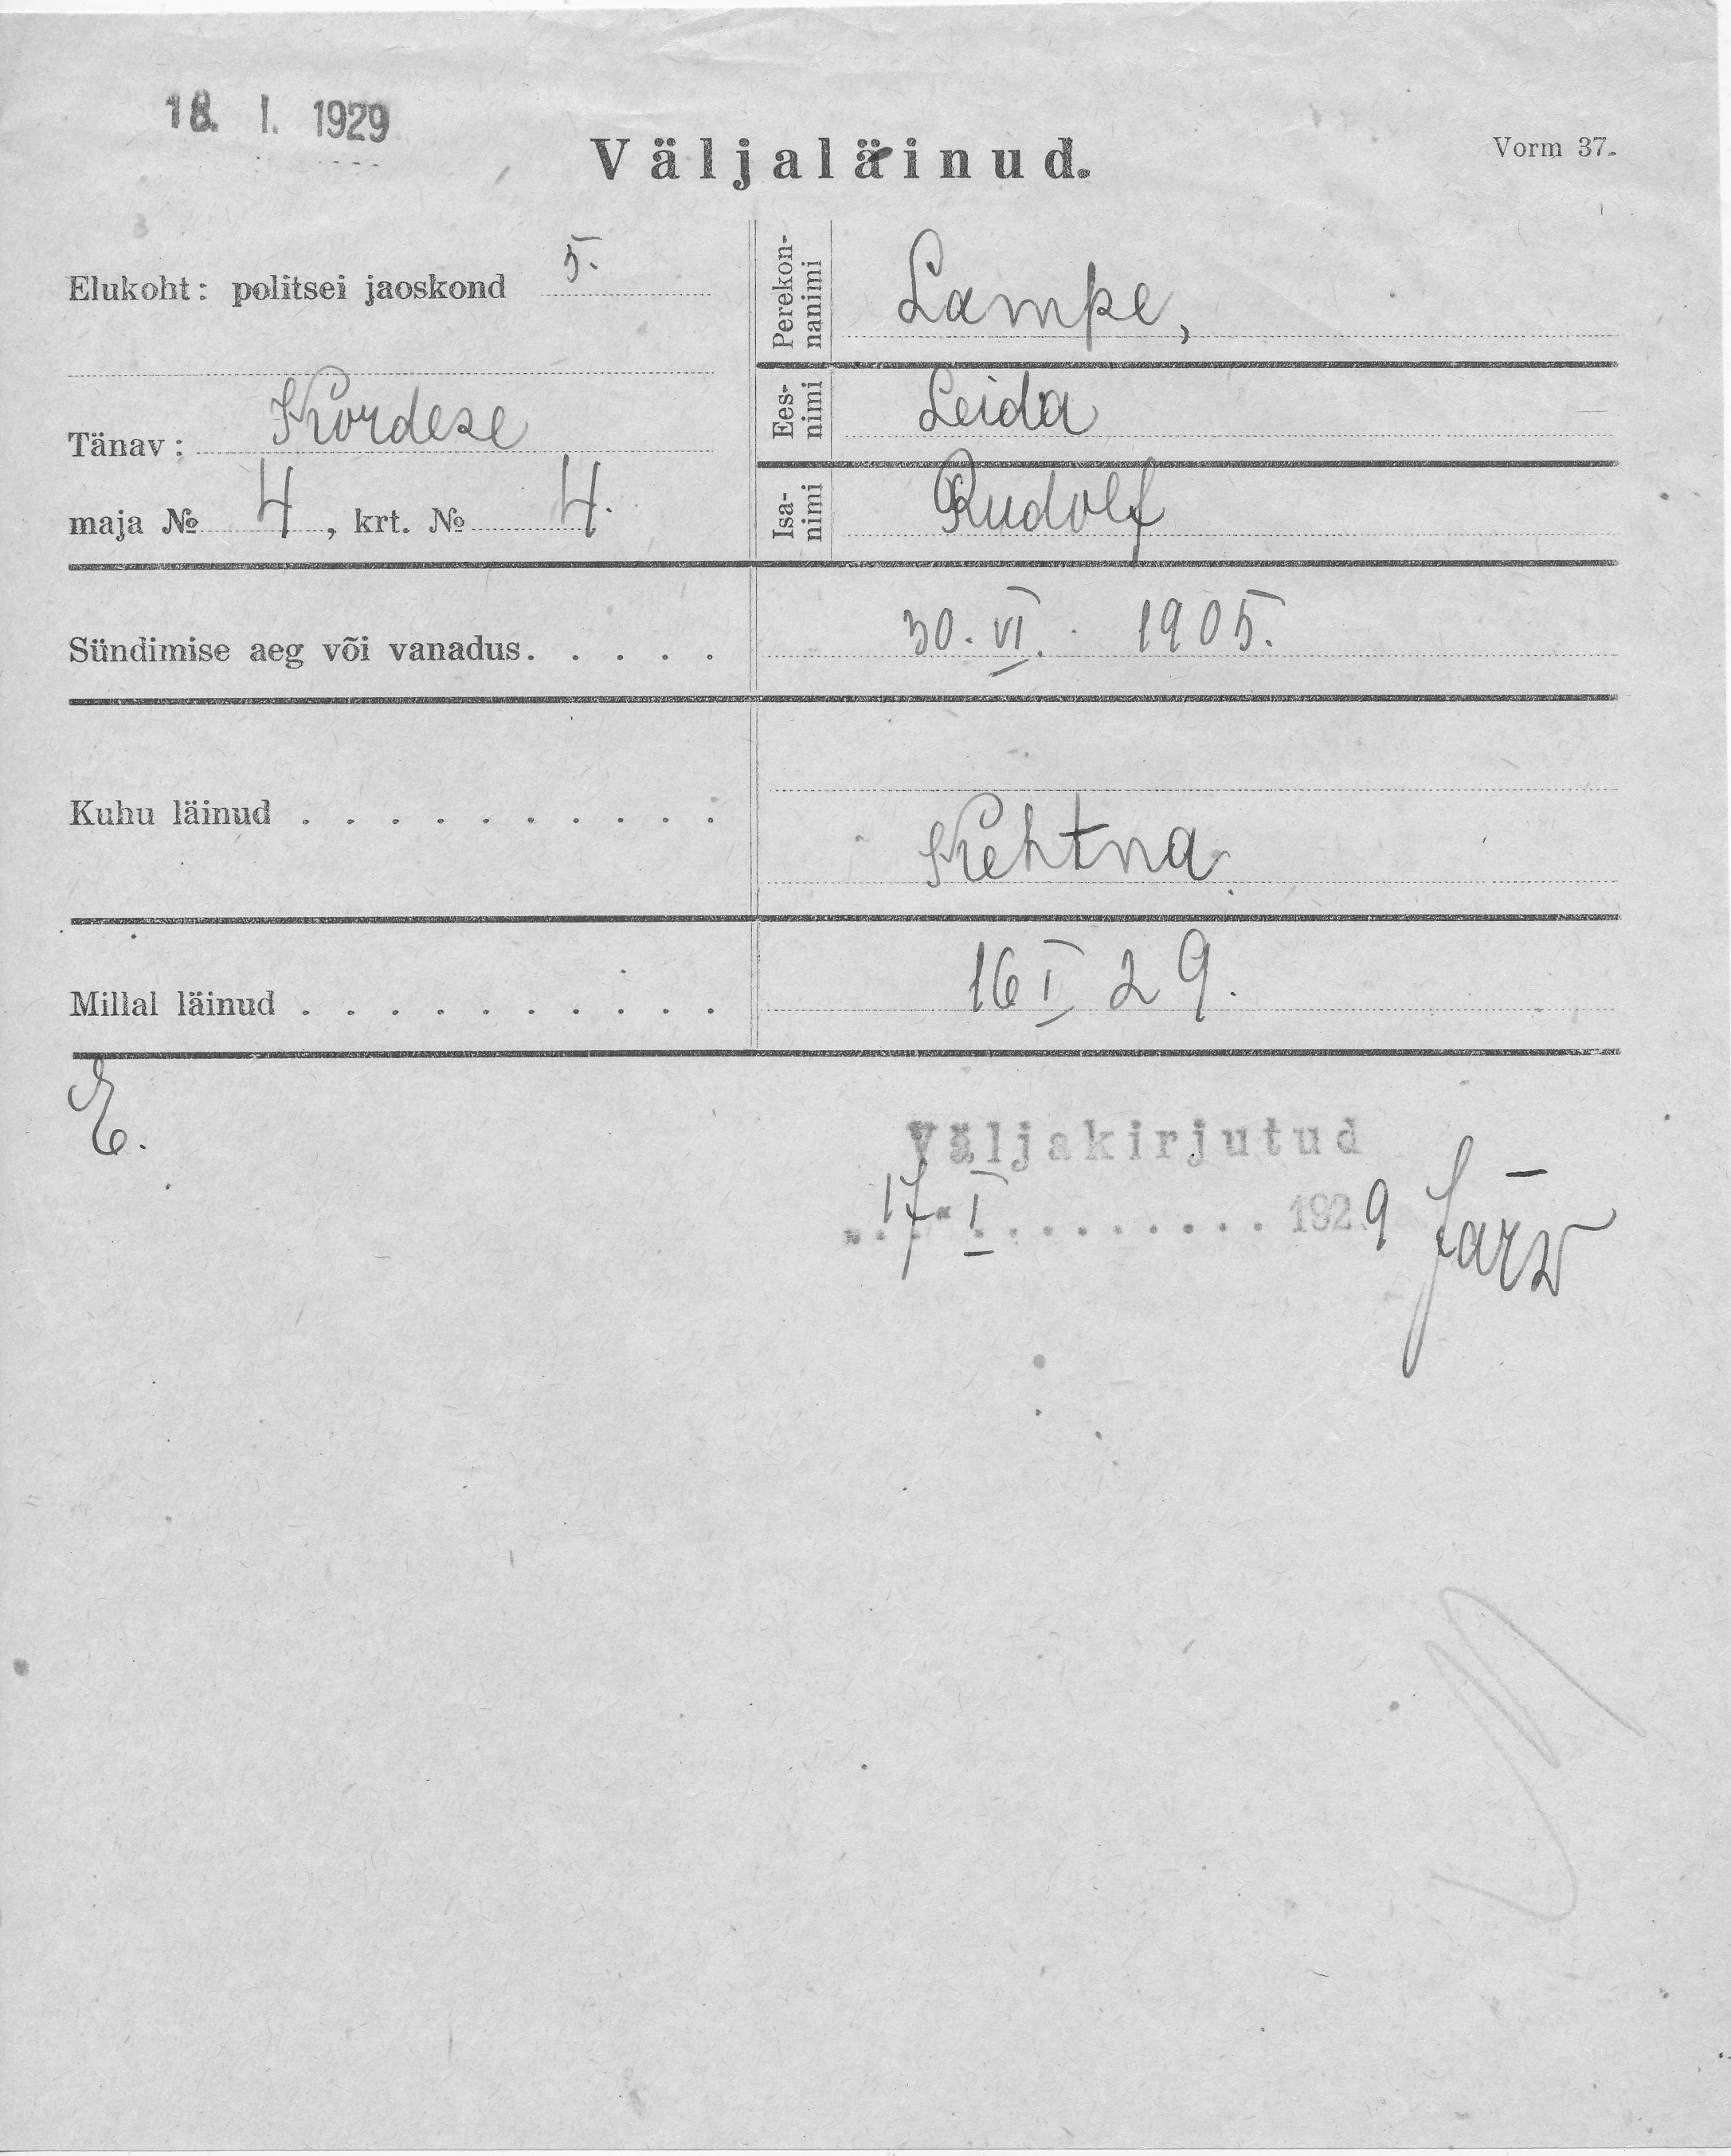 18. I. 1929
Väljaläinud.
Vorm 37.
Elukoht: politsei jaoskond 5.
Tänav: Kordese
maja № 4, krt. № 4.
Perekonnanimi Lampe,
Eesnimi Leida
Isanimi Rudolf
Sündimise aeg või vanadus. . . . . 30. VI. 1905.
Kuhu läinud . . . . . . . . . . Kehtna.
Millal läinud . . . . . . . . . . 16 I 29.
E.
Väljakirjutud
17. I . . . . . . . . . 1929 Järw